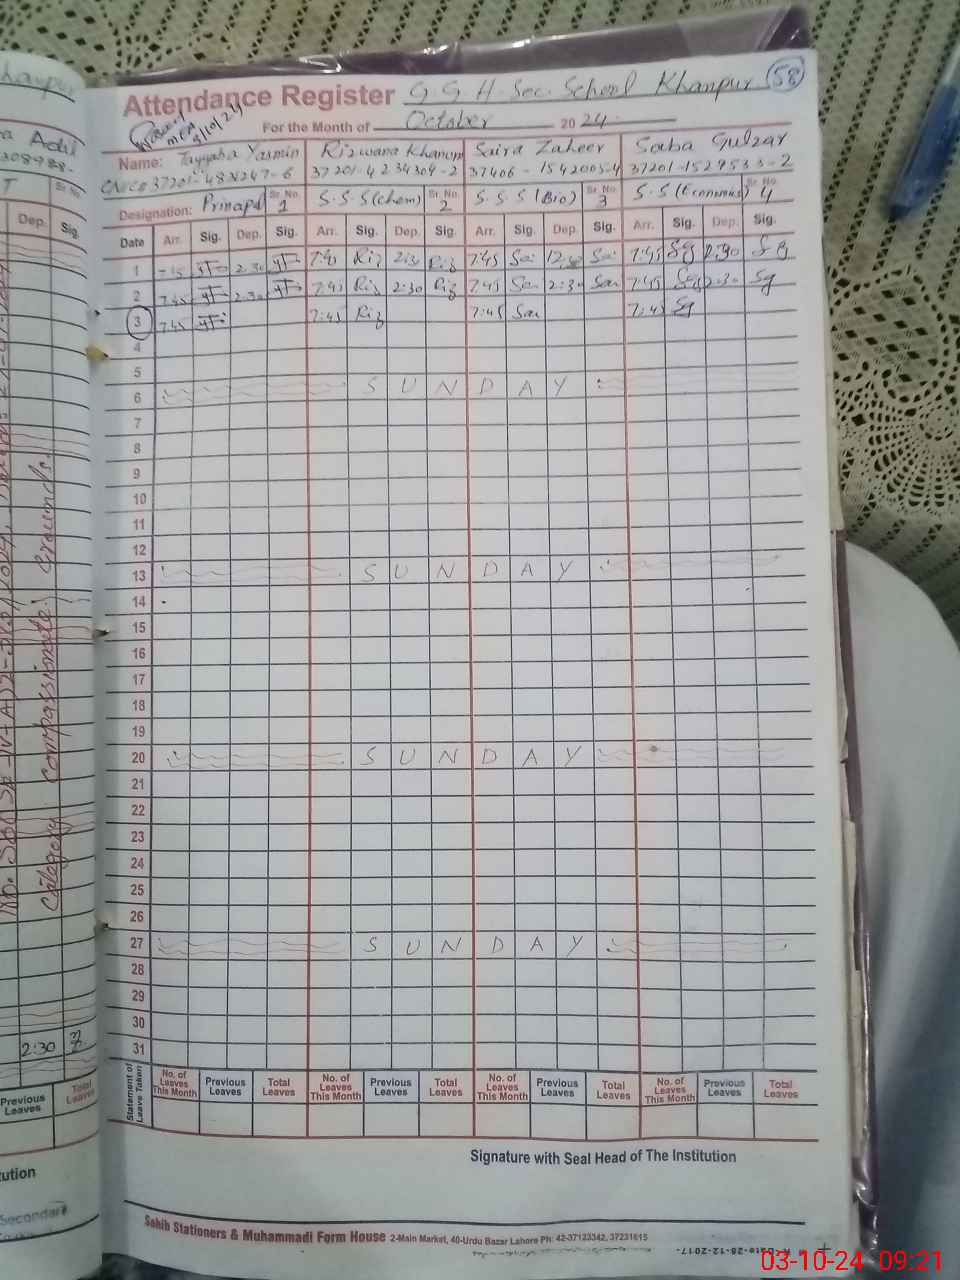 Attendance Register G.G.H.Sec.School Khanpur 58
For the Month of October 2024
3/10/24
Name: Tayyaba Yasmin Rizwana Khanum Saira Zaheer Saba Gulzar
37201-4234309-2 37406-1542005-4 37201-1529533-2
Designation: Prinapal Sr.No. 1 S.S.S(Chem) Sr.No. 2 S.S.S(Bio) Sr.No. 3 S.S(Economics) Sr.No. 4
Date Arr. Sig. Dep. Sig. Arr. Sig. Dep. Sig. Arr. Sig. Dep. Sig. Arr. Sig. Dep. Sig.
1 7:45 2:30 7:45 Riz 2:30 Riz 7:45 Sai 12:30 Sai 7:45 Sg 2:30 Sg
2 7:45 2:30 7:45 Riz 2:30 Riz 7:45 Sai 2:30 Sai 7:45 Sg 2:30 Sg
3 7:45 7:45 Riz 7:45 Sai 7:45 Sg
4
5
6 SUNDAY
7
8
9
10
11
12
13 SUNDAY
14
15
16
17
18
19
20 SUNDAY
21
22
23
24
25
26
27 SUNDAY
28
29
30
31
Statement of Leave Taken No. of Leaves This Month Previous Leaves Total Leaves No. of Leaves This Month Previous Leaves Total Leaves No. of Leaves This Month Previous Leaves Total Leaves No. of Leaves This Month Previous Leaves Total Leaves
Signature with Seal Head of The Institution
Sahib Stationers & Muhammadi Form House 2-Main Market, 40-Urdu Bazar Lahore Ph: 42-37123342, 37231615
Dep. Sig.
Category Compassionate Grounds.
2:30
Previous Leaves Total Leaves
03-10-24 09:21